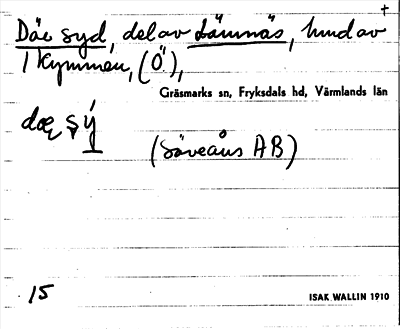 +
Där syd, del av Lämnäs, hmd av
1 Kymmen, (Ö),
Gräsmarks sn, Fryksdals hd, Värmlands län
dær sý
(Söveåns AB)
15
ISAK WALLIN 1910